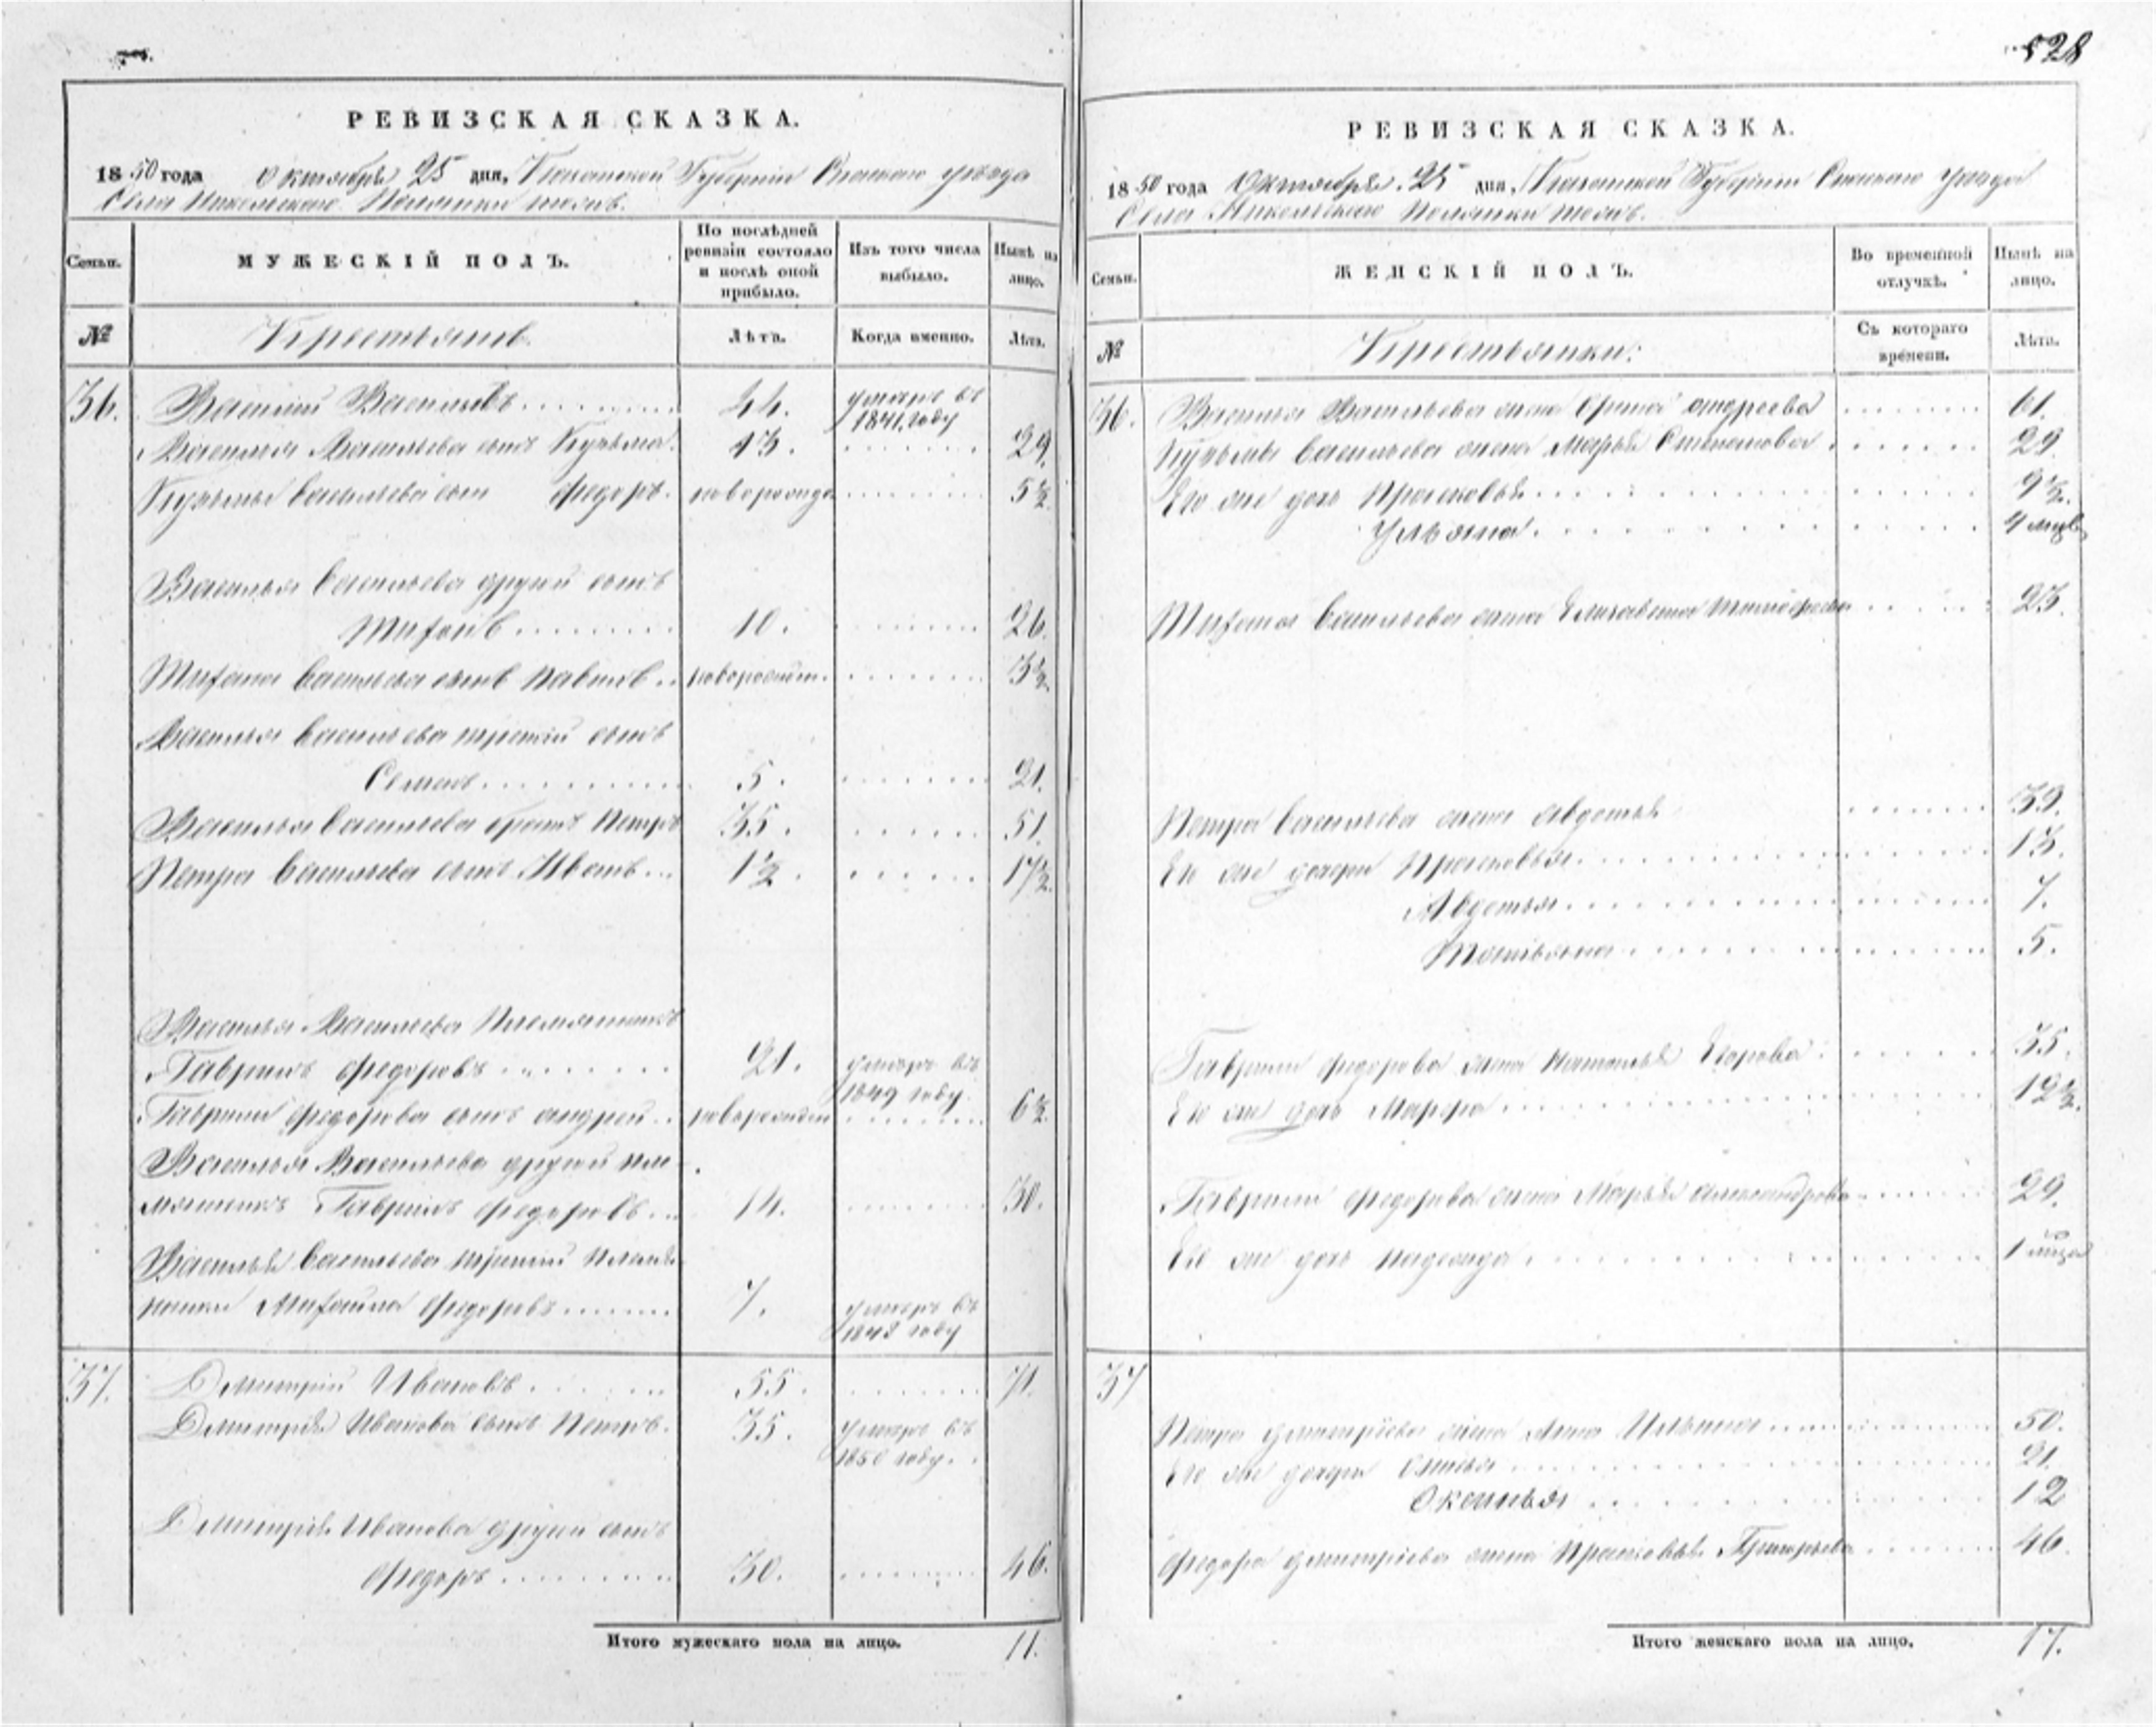 528
РЕВИЗСКАЯ СКАЗКА.
1850 года Октября 25 дня, Казанской Губернии Спаскаго уезда
Села Никольскаго Полянки тожъ.
Семьи.
МУЖЕСКІЙ ПОЛЪ.
По послѣдней ревизіи состояло и послѣ оной прибыло.
Изъ того числа выбыло.
Нынѣ на лицо.
№
Крестьянъ
Лѣта.
Когда именно.
Лѣта.
36. Василий Васильевъ 44. умеръ въ 1841 году
Василья Васильева сынъ Кузьма. 13. 29.
Кузьмы Васильева сынъ Федоръ. новорожде 5½
Василья Васильева другой сынъ
Михаил 10. 26.
Михаила Васильева сынъ Павелъ новорожден. 3½
Василья Васильева третий сынъ
Семенъ 5. 21.
Василья Васильева братъ Петръ 35. 51.
Петра Васильева сынъ Иванъ 1½. 17½
Василья Васильева Племянникъ
Гаврилъ Федоровъ 21. умеръ въ 1849 году.
Гаврилы Федорова сынъ Андрей новорожден 6½
Василья Васильева другой пле-
мянникъ Гаврилъ Федоровъ 14. 30.
Василья Васильева третий племян
Михайла Федоровъ 7. умеръ въ году
37. Дмитрий Ивановъ 55. 71.
Дмитрия Иванова сынъ Петръ. 35. умеръ въ 1850 году.
Дмитрия Иванова другой сынъ
Федоръ 30. 46.
Итого мужескаго пола на лицо. 11.
РЕВИЗСКАЯ СКАЗКА.
1850 года Октября 25 дня, Казанской Губернии Спаскаго уезда
Села Никольскаго Полянки тожъ.
Семьи.
ЖЕНСКІЙ ПОЛЪ.
Во временной отлучкѣ.
Нынѣ на лицо.
№
Крестьянки:
Съ котораго времени.
Лѣта.
36. Василья Васильева жена Арина Андреева 61.
Кузьмы Васильева жена Марья Степанова 29.
Его же дочь Прасковья 9½.
Ульяна. 4
Михаила Васильева жена Елизавета Тимофеева 23.
Петра Васильева жена Авдотья 39.
Его же дочери Прасковья 13.
Авдотья 7.
Татьяна 5.
Гаврилы Федорова жена Наталья Егорова 35.
Его же дочь Марфа 12½.
Гаврилы Федорова жена Марья Александрова 29.
Его же дочь Надежда 1
37
Петра Дмитриева жена Анна Ильина 50.
Его же дочери 21.
Оксинья 12
Федора Дмитриева жена Прасковья Григорьева 46.
Итого женскаго пола на лицо. 17.